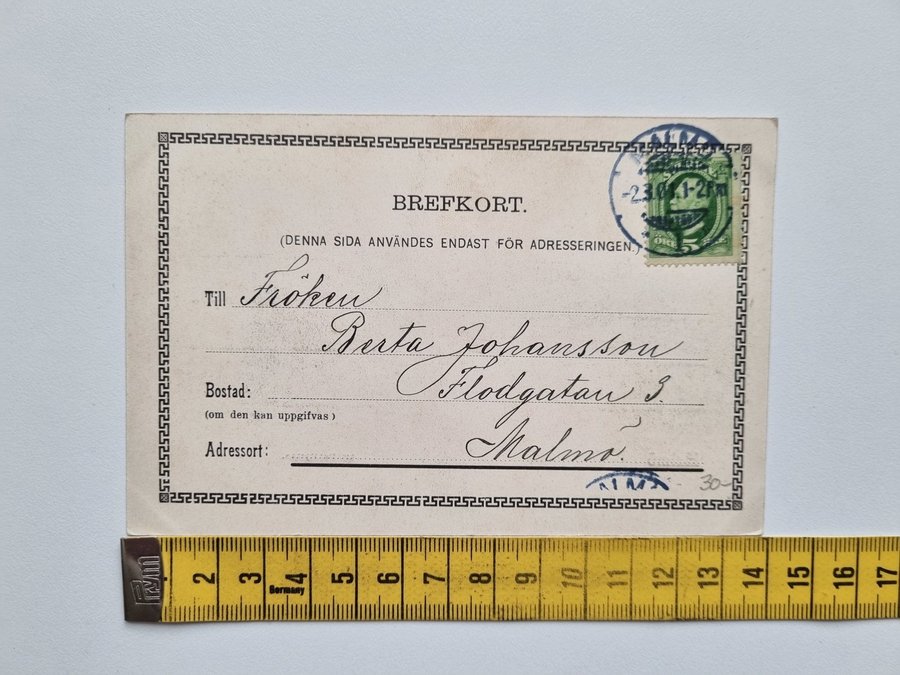 BREFKORT.
(DENNA SIDA ANVÄNDES ENDAST FÖR ADRESSERINGEN.)
Till Fröken
Berta Johansson
Bostad: Flodgatan 3.
(om den kan uppgifvas)
Adressort: Malmö.
MALMÖ
1-2 Fm
ÖRE 5 ÖRE
30-
1 2 3 4 5 6 7 8 9 10 11 12 13 14 15 16 17
Germany